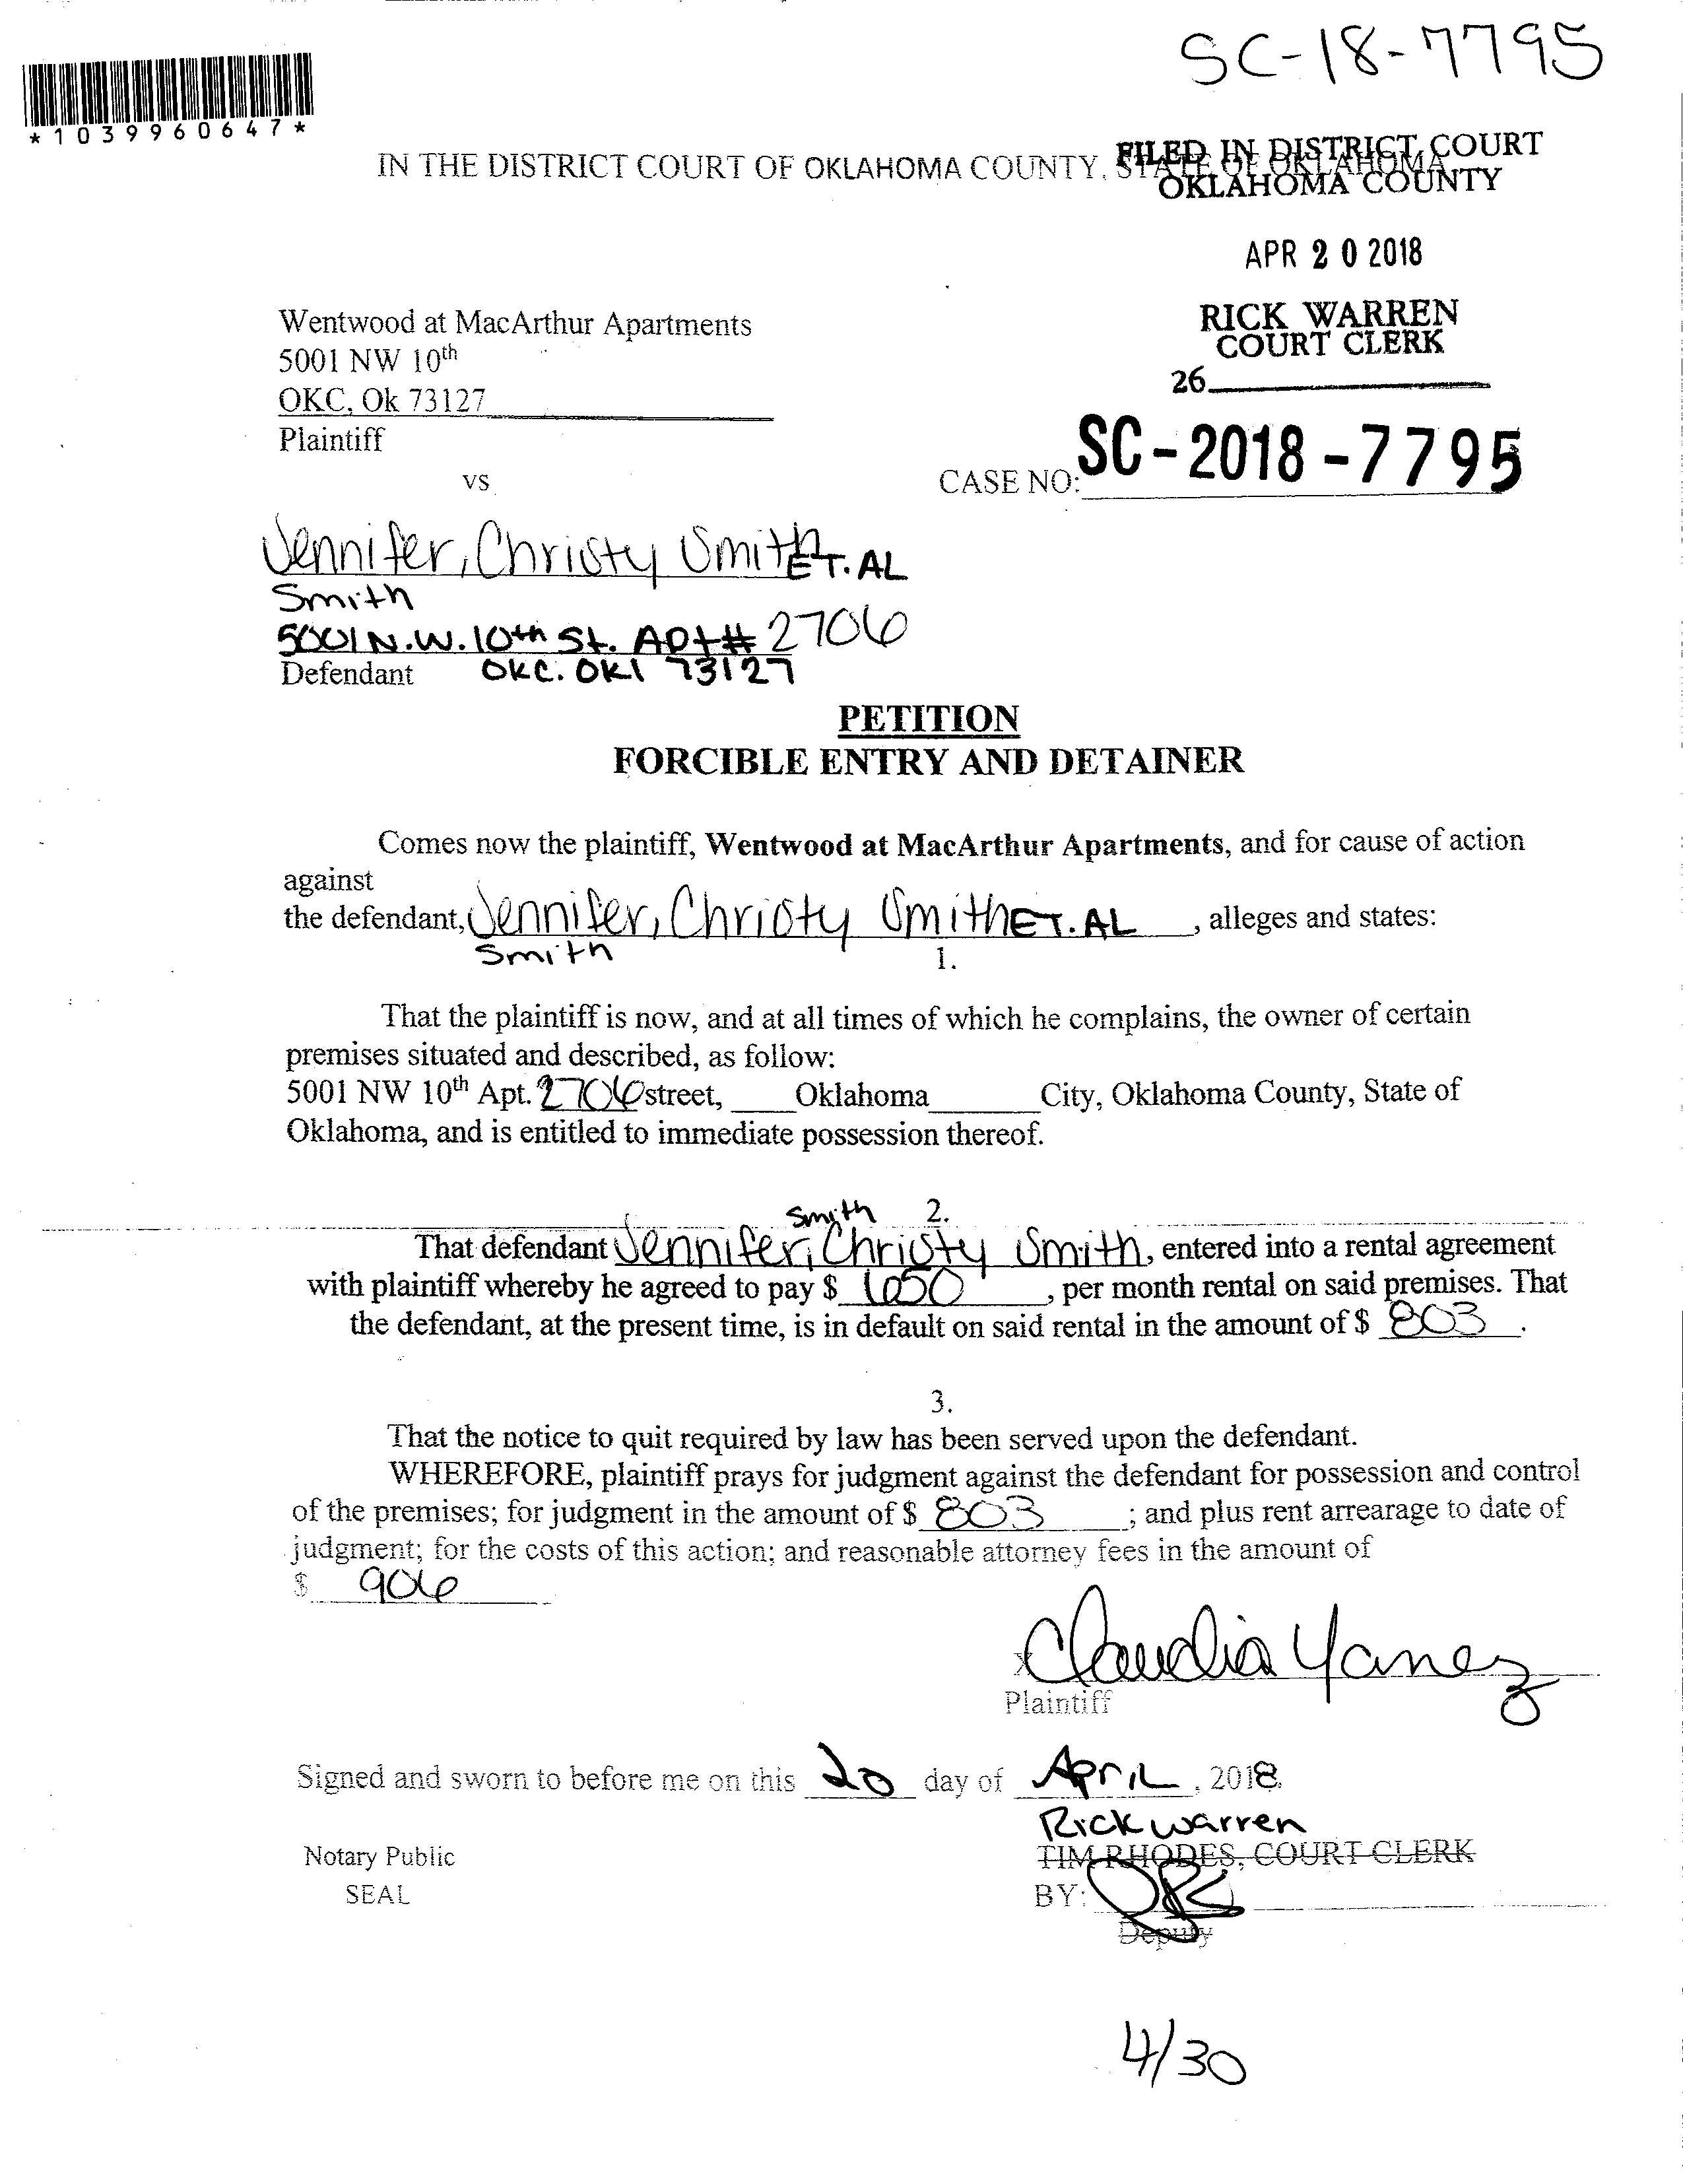 SC-18-7795
*1039960647*
IN THE DISTRICT COURT OF OKLAHOMA COUNTY, STATE OF OKLAHOMA
FILED IN DISTRICT COURT
OKLAHOMA COUNTY
APR 20 2018
RICK WARREN
COURT CLERK
26
Wentwood at MacArthur Apartments
5001 NW 10th
OKC, Ok 73127
Plaintiff
vs
CASE NO: SC-2018-7795
Jennifer, Christy Smith ET. AL
Smith
5001 N.W. 10th St. APt# 2706
Defendant OKC. OKl 73127
PETITION
FORCIBLE ENTRY AND DETAINER
Comes now the plaintiff, Wentwood at MacArthur Apartments, and for cause of action
against
the defendant, Jennifer, Christy Smith ET. AL , alleges and states:
Smith
1.
That the plaintiff is now, and at all times of which he complains, the owner of certain
premises situated and described, as follow:
5001 NW 10th Apt. 2706 street, Oklahoma City, Oklahoma County, State of
Oklahoma, and is entitled to immediate possession thereof.
Smith 2.
That defendant Jennifer, Christy Smith, entered into a rental agreement
with plaintiff whereby he agreed to pay $ 650 , per month rental on said premises. That
the defendant, at the present time, is in default on said rental in the amount of $ 803 .
3.
That the notice to quit required by law has been served upon the defendant.
WHEREFORE, plaintiff prays for judgment against the defendant for possession and control
of the premises; for judgment in the amount of $ 803 ; and plus rent arrearage to date of
judgment; for the costs of this action; and reasonable attorney fees in the amount of
$ 906
x Claudia Yanez
Plaintiff
Signed and sworn to before me on this 20 day of April, 2018.
Rick Warren
TIM RHODES, COURT CLERK
Notary Public
SEAL
BY:
Deputy
4/30